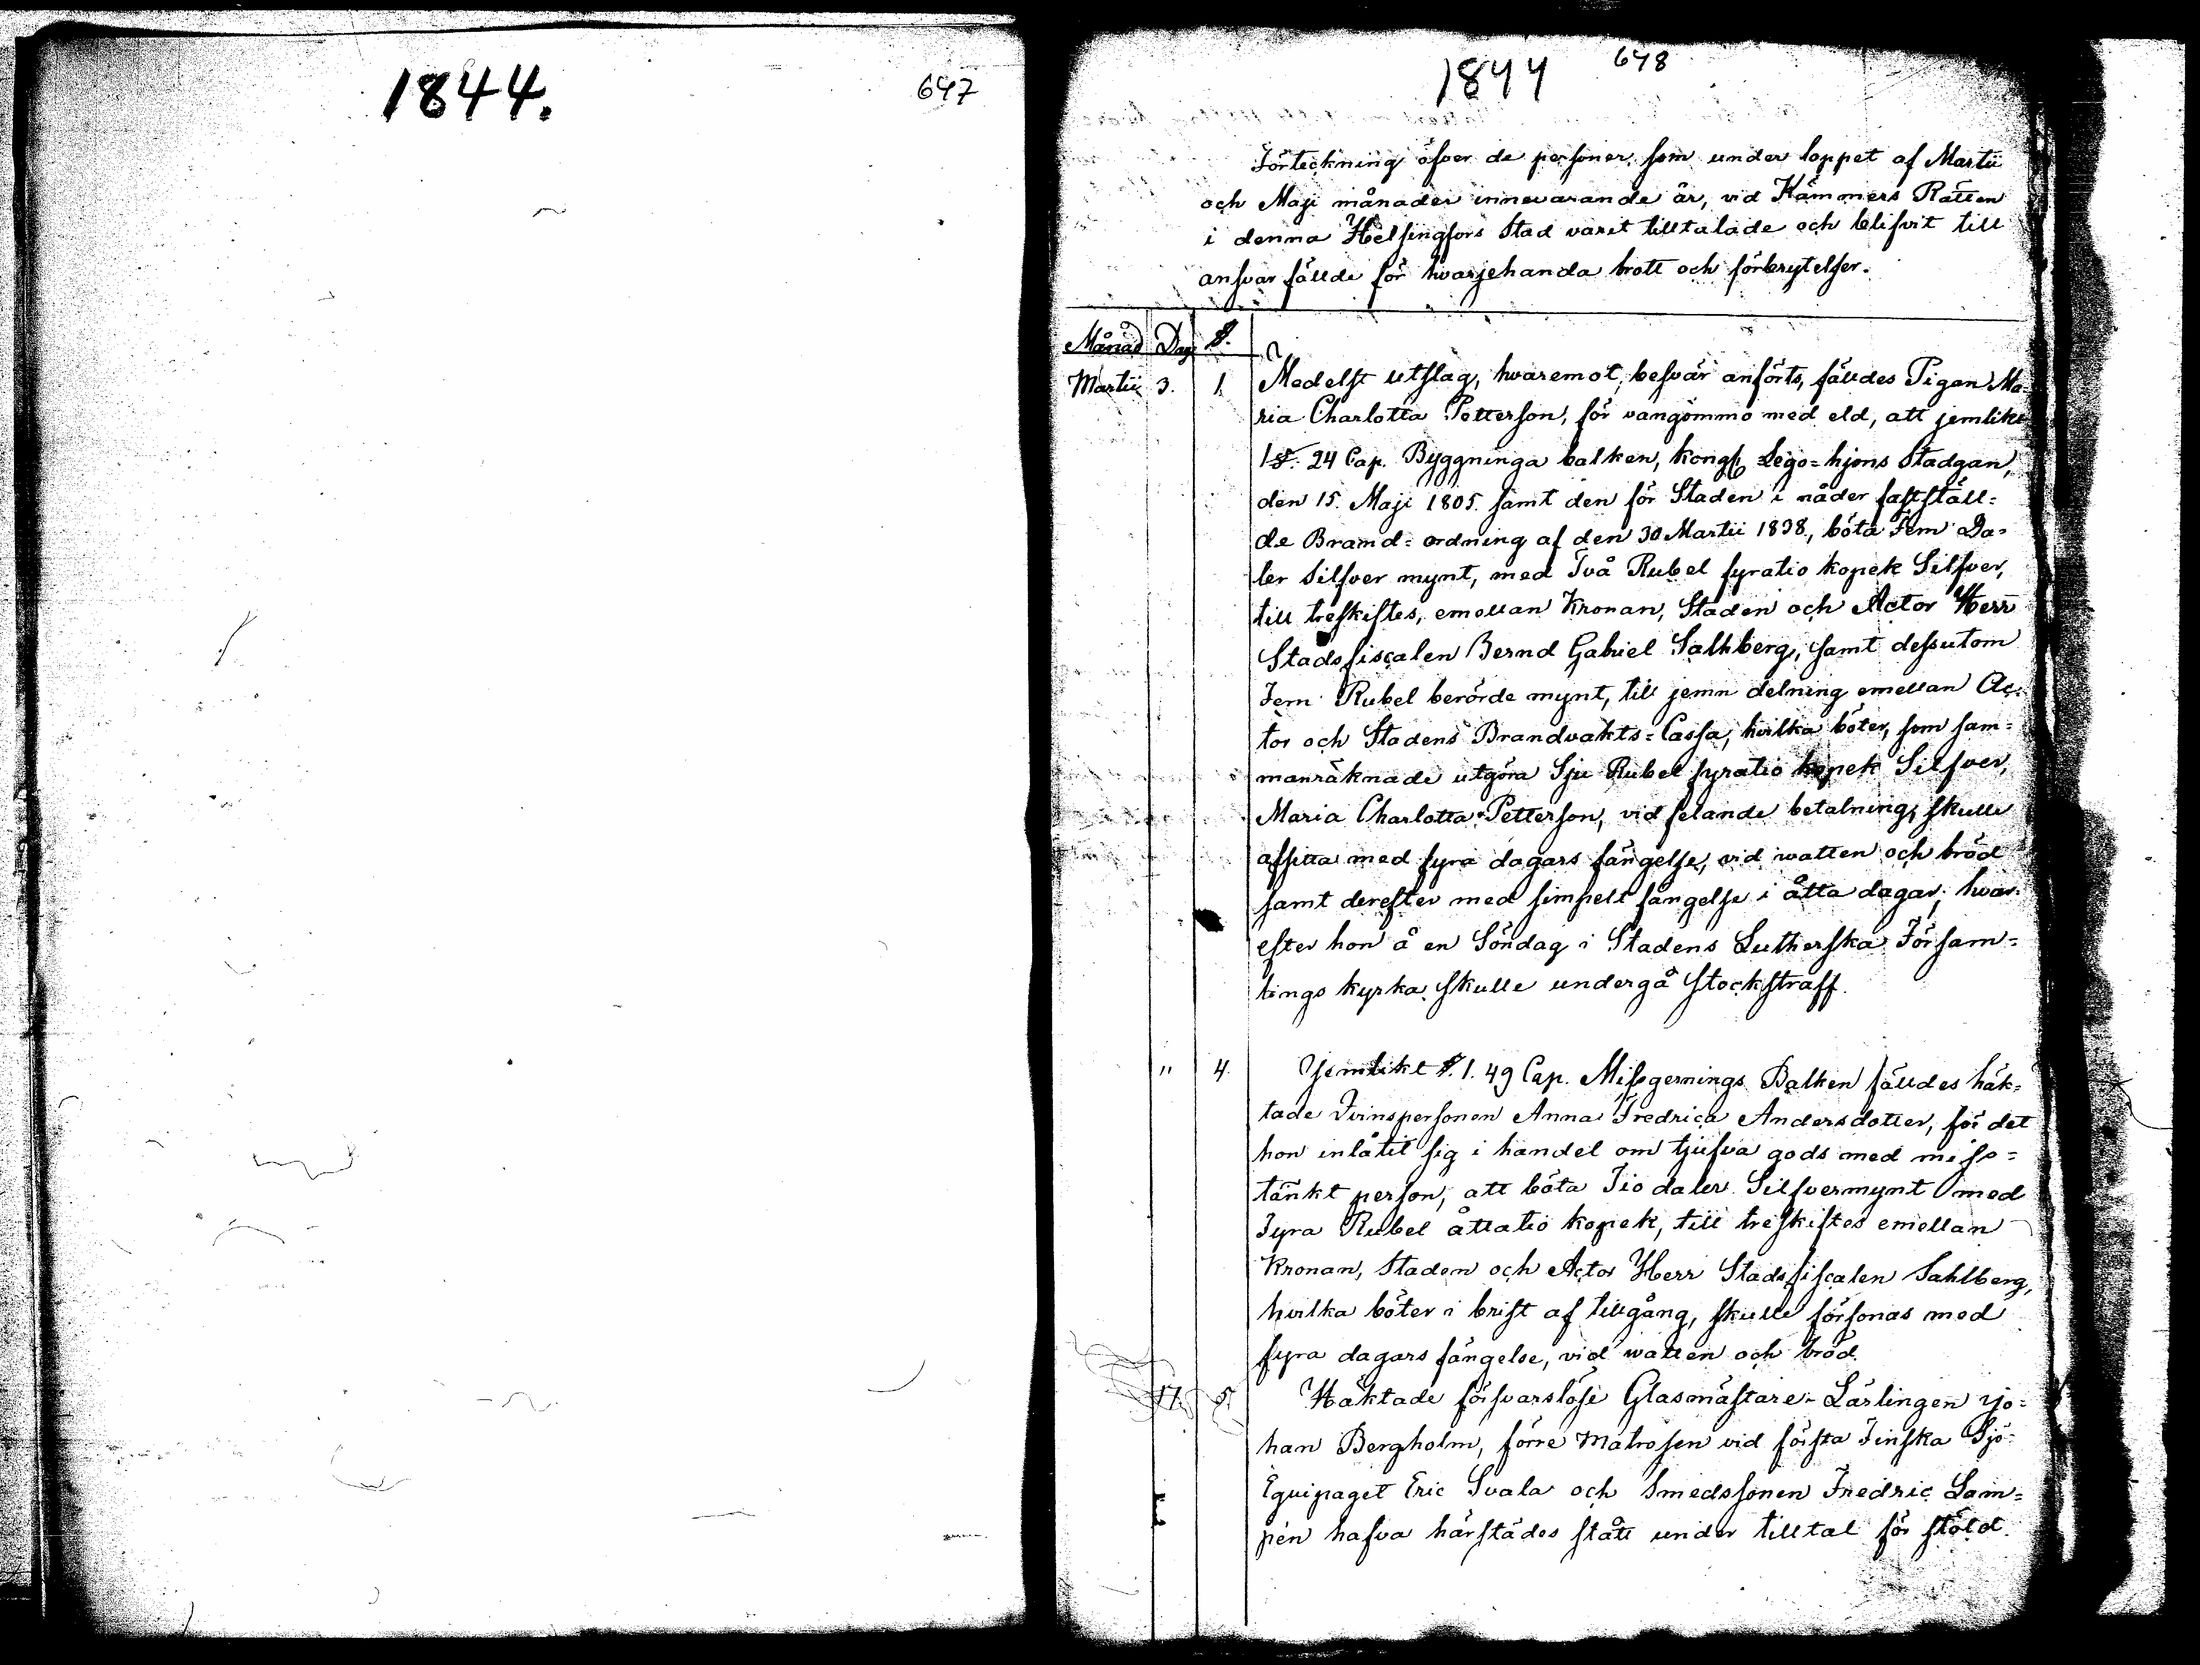 1844.
647
1844
648
Förteckning öfver de personer, som under loppet af Martii
och Maji månader innevarande år, vid Kämners Rätten
i denna Helsingfors Stad varit tilltalade och blifvit till
ansvar fällde för hvarjehanda brott och förbrytelser.
Månad Dag §.
Martii 3. 1. Medelst utslag, hvaremot besvär anförts, fälldes Pigan Ma-
ria Charlotta Petterson, för vangömmo med eld, att jemlikt
1 §. 24 Cap. Byggninga balken, kongl. Lego-hjons Stadgan,
den 15. Maji 1805. samt den för Staden i nåder fastställ-
de Brand-ordning af den 30 Martii 1838, böta Fem Da-
ler Silfver mynt, med Två Rubel fyratio kopek Silfver,
till treskiftes, emellan Kronan, Staden och Actor Herr
Stadsfiscalen Bernd Gabriel Sahlberg, samt dessutom
Fem Rubel berörde mynt, till jemn delning emellan Ac-
tor och Stadens Brandvakts-Cassa, hvilka böter, som sam-
manräknade utgöra Sju Rubel fyratio kopek Silfver,
Maria Charlotta Petterson, vid felande betalning, skulle
afsitta med fyra dagars fängelse, vid watten och bröd
samt derefter med simpelt fängelse i åtta dagar, hvar-
efter hon å en Söndag i Stadens Lutherska Försam-
lings kyrka skulle undergå Stockstraff.
" 4. Jemlikt §. 1. 49 Cap. Missgernings Balken fälldes häk-
tade Qvinspersonen Anna Fredrica Andersdotter, för det
hon inlåtit sig i handel om tjufva gods med miss-
tänkt person, att böta Tio daler Silfvermynt med
Fyra Rubel åttatio kopek, till treskiftes emellan
Kronan, Staden och Actor Herr Stadsfiscalen Sahlberg,
hvilka böter i brist af tillgång, skulle försonas med
fyra dagars fängelse, vid watten och bröd.
17. 5. Häktade försvarslöse Glasmästare-Lärlingen Jo-
han Bergholm, förre Matrosen vid första Finska Sjö-
Equipaget Eric Svala och Smedssonen Fredric Lam-
pén hafva härstädes stått under tilltal för stöld.